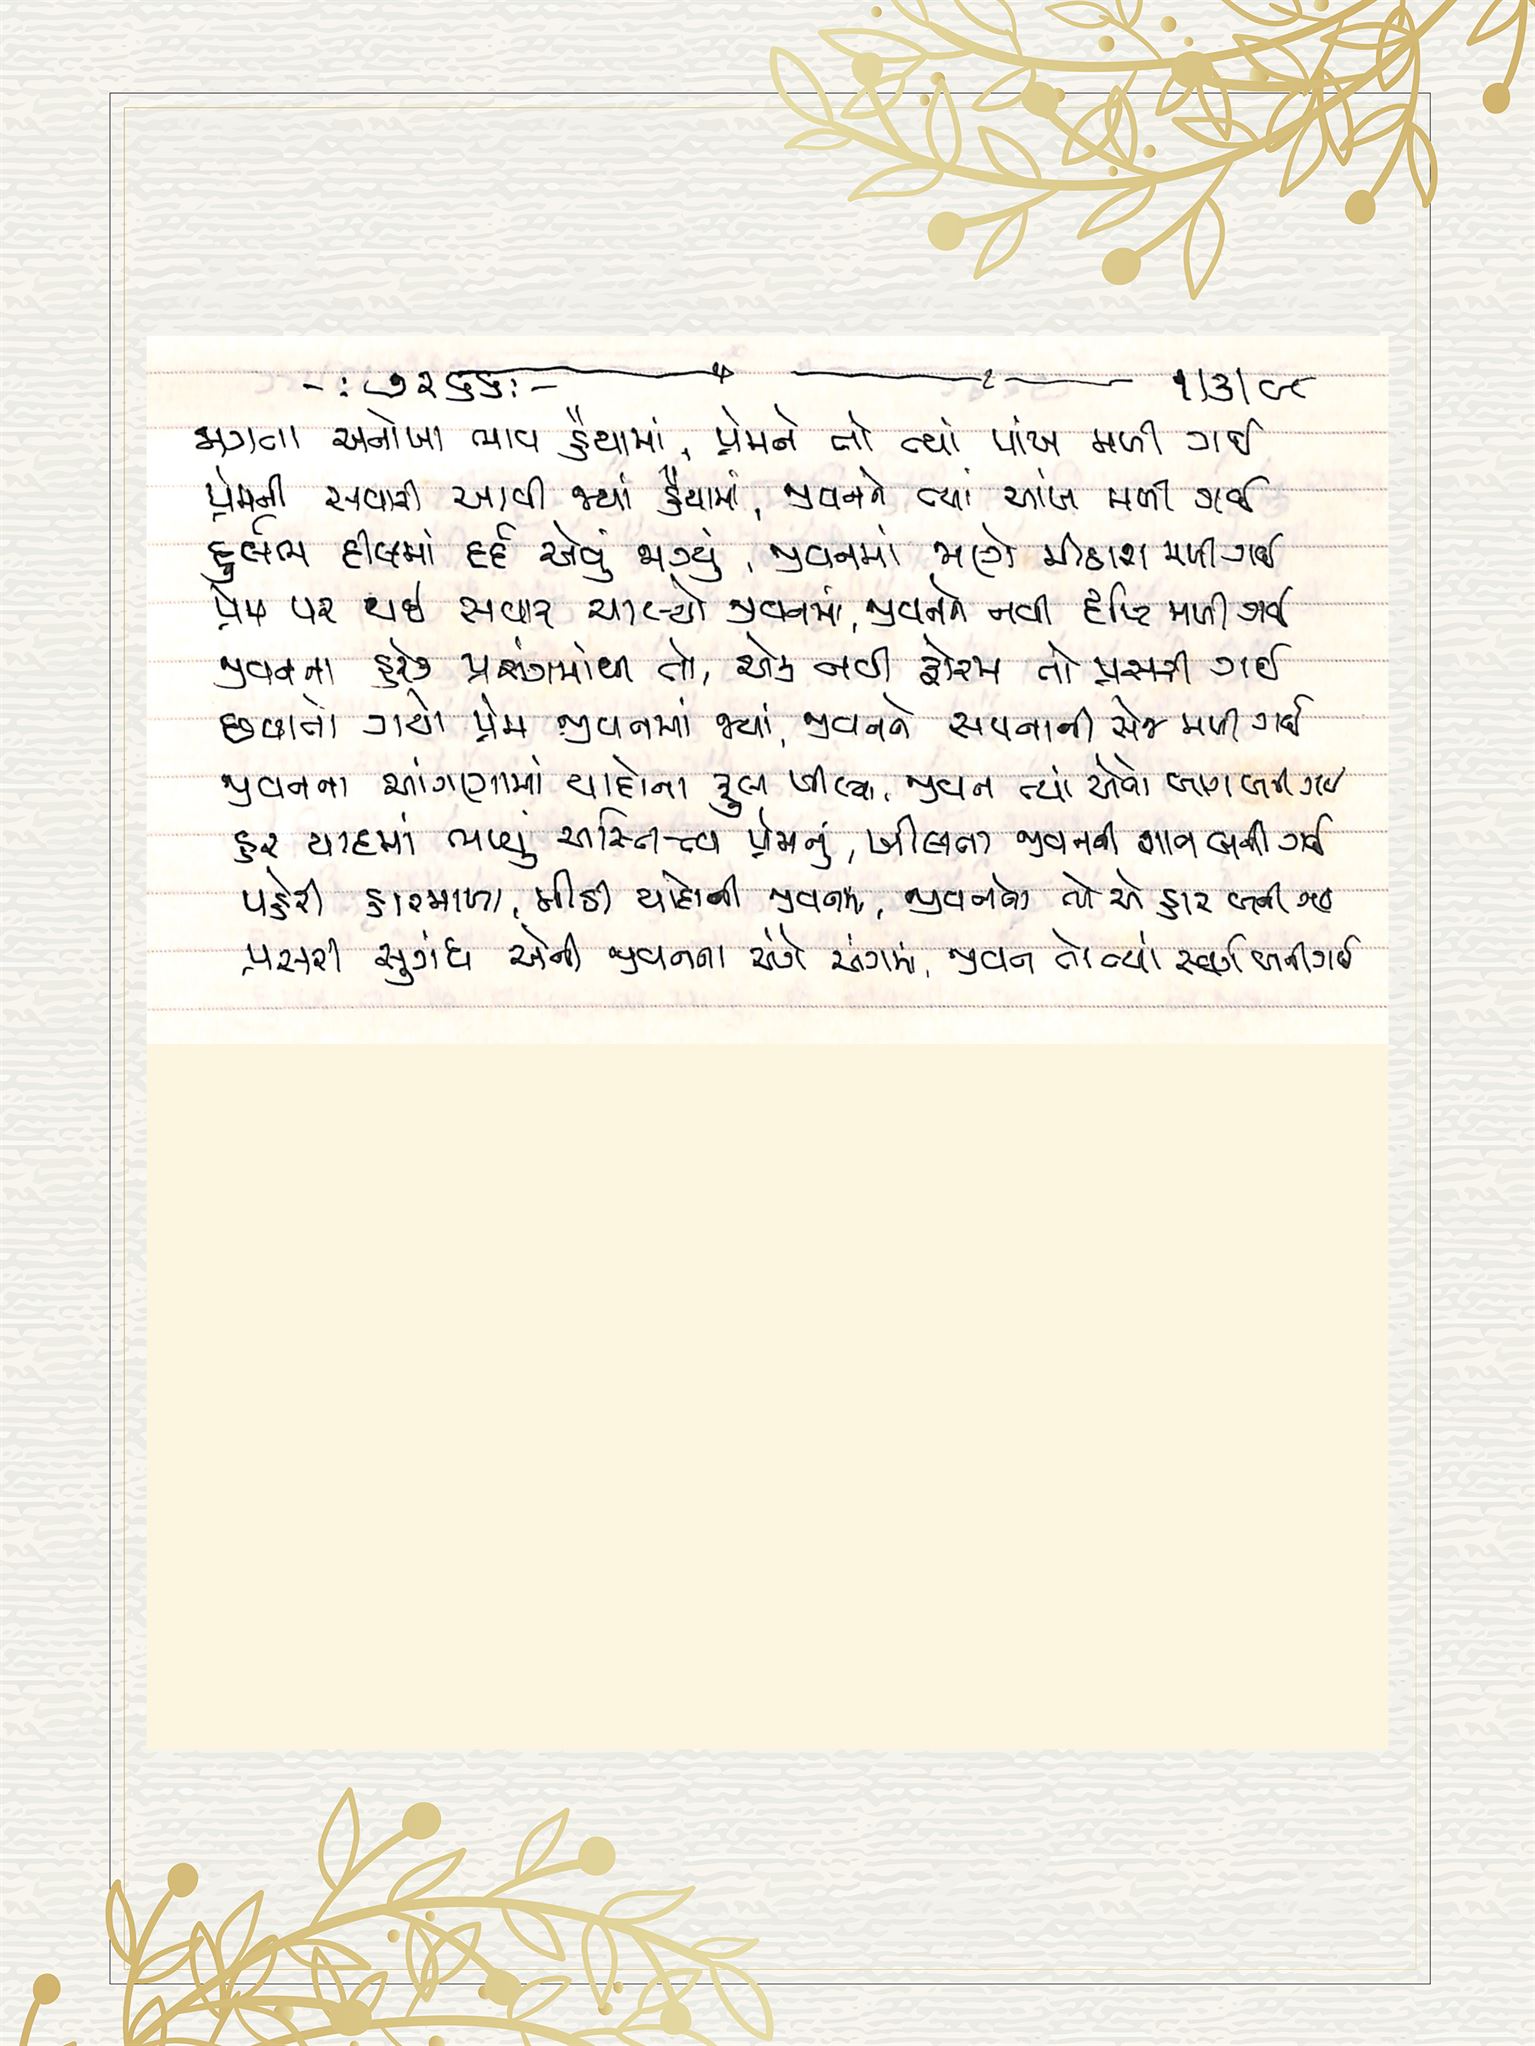 -: ૭૨૬૬ :- ૧/૩/૯૮
જાગતા અનોખા ભાવ હૈયામાં, પ્રેમને તો ત્યાં પાંખ મળી ગઈ
પ્રેમની સવારી આવી જ્યાં હૈયામાં, જીવનને ત્યાં આંખ મળી ગઈ
દુર્લભ દીલમાં દર્દ એવું જાગ્યું, જીવનમાં જાણે મીઠાશ મળી ગઈ
પ્રેમ પર થઈ સવાર ચાલ્યો જીવનમાં, જીવનને નવી દૃષ્ટિ મળી ગઈ
જીવનના હરેક પ્રસંગમાંથી તો, એક નવી ફોરમ તો પ્રસરી ગઈ
છવાતો ગયો પ્રેમ જીવનમાં જ્યાં, જીવનને સપનાની સેજ મળી ગઈ
જીવનના આંગણામાં યાદોના ફુલ ખીલ્યા, જીવન ત્યાં એવો બાગ બની ગઈ
હર યાદમાં ભળ્યું અસ્તિત્ત્વ પ્રેમનું, ખીલતા જીવનની શાન બની ગઈ
પહેરી હારમાળા, મીઠી યાદોની જીવનમાં, જીવનનો તો એ હાર બની ગઈ
પ્રસરી સુગંધ એની જીવનના અંગે અંગમાં, જીવન તો ત્યાં સ્વર્ગ બની ગઈ